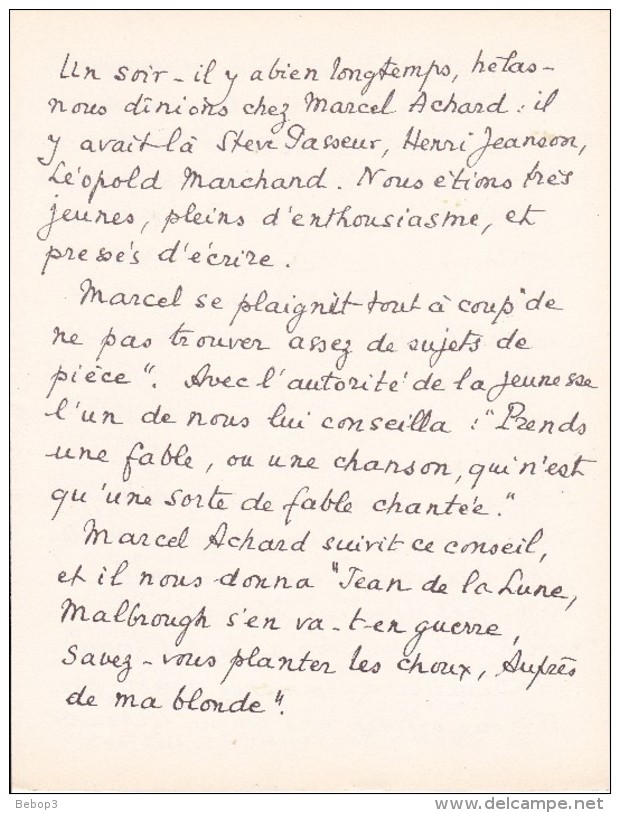 Un soir - il y a bien longtemps, hélas -
nous dînions chez Marcel Achard : il
y avait là Steve Passeur, Henri Jeanson,
Léopold Marchand. Nous étions très
jeunes, pleins d'enthousiasme, et
pressés d'écrire.
Marcel se plaignit tout à coup "de
ne pas trouver assez de sujets de
pièce". Avec l'autorité de la jeunesse
l'un de nous lui conseilla : "Prends
une fable, ou une chanson, qui n'est
qu'une sorte de fable chantée."
Marcel Achard suivit ce conseil,
et il nous donna "Jean de la Lune,
Malbrough s'en va-t-en guerre,
Savez-vous planter les choux, Auprès
de ma blonde".
Bebop3
www.delcampe.net